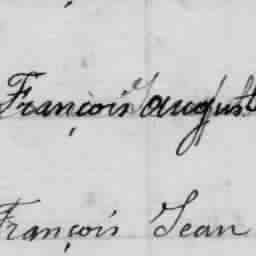 François august
François Jean